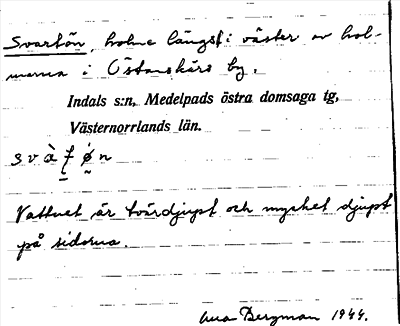 Svartön, holme längst i väster av hol-
marna i Östanskärs by.
Indals s:n, Medelpads östra domsaga tg,
Västernorrlands län.
Vattnet är tvärdjupt och mycket djupt
på sidorna.
Bergman 1944.